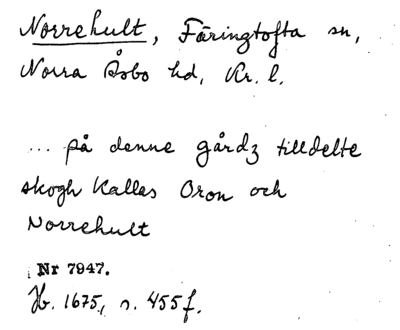 Norrehult, Färingtofta sn,
Norra Åsbo hd, Kr. l.
... på denne gårdz tilldelte
skogh kallas Oron och
Norrehult
Nr 7947.
Hb. 1675, s. 455 f.